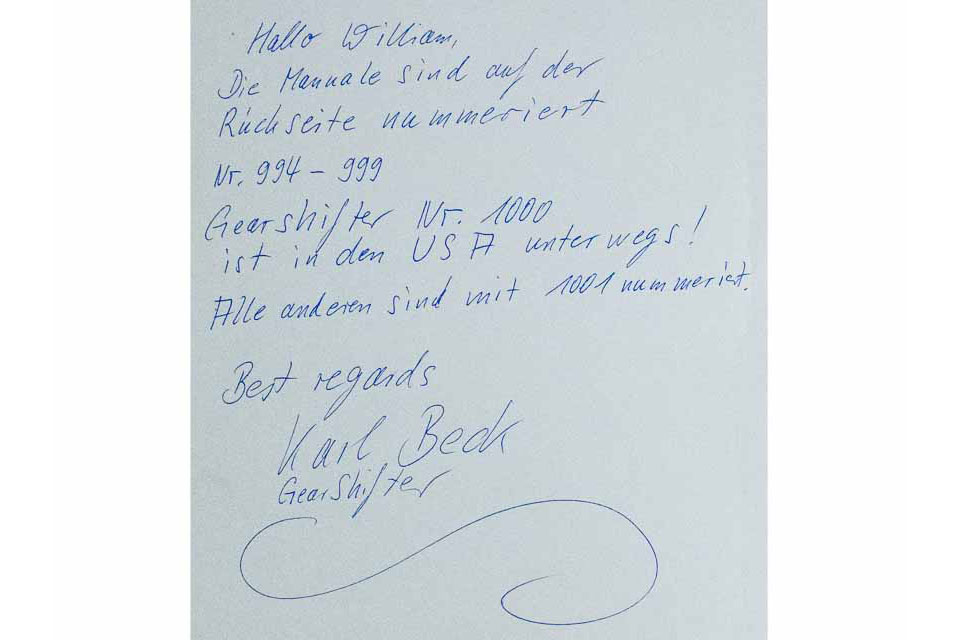 Hallo William,
Die Manuale sind auf der
Rückseite nummeriert
Nr. 994 – 999
Gearshifter Nr. 1000
ist in den USA unterwegs!
Alle anderen sind mit 1001 nummeriert.
Best regards
Karl Beck
Gearshifter